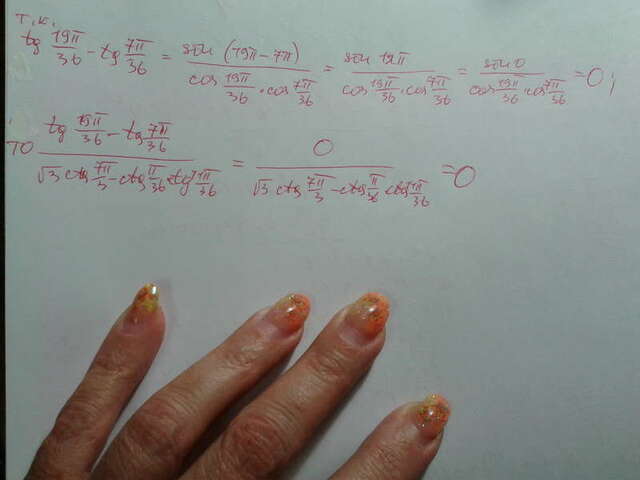 т.к.
tg 19π/36 - tg 7π/36 = sin (19π - 7π)/cos 19π/36 · cos 7π/36 = sin 12π/cos 19π/36 · cos 7π/36 = sin 0/cos 19π/36 · cos 7π/36 = 0;
то tg 19π/36 - tg 7π/36/√3 ctg 7π/3 - ctg π/36 ctg 7π/36 = 0/√3 ctg 7π/3 - ctg π/36 ctg 7π/36 = 0